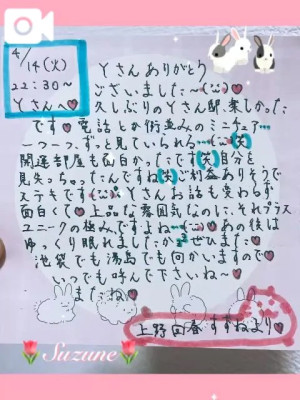 4/14(火)
22:30~
Yさんへ♥
Yさんありがとう
ございました~(^^)♥
久しぶりのYさん邸楽しかった
です♥電話とか街並みのミニチュア…
一つ一つ、ずっと見ていられる…(笑)
開運部屋も面白かったです(笑)自分を
見失っちゃったんですね(笑)ご利益ありそうで
ステキです♥Yさんお話も変わらず
面白くて♥上品な雰囲気なのに、それプラス
ユニークの極みですよね…♥あの後は
ゆっくり眠れましたか?ぜひまた♥
池袋でも湯島でも何かいますので♥
いつでも呼んで下さいね~♥
またね♥
上野回春すずねより♥
Suzune♥